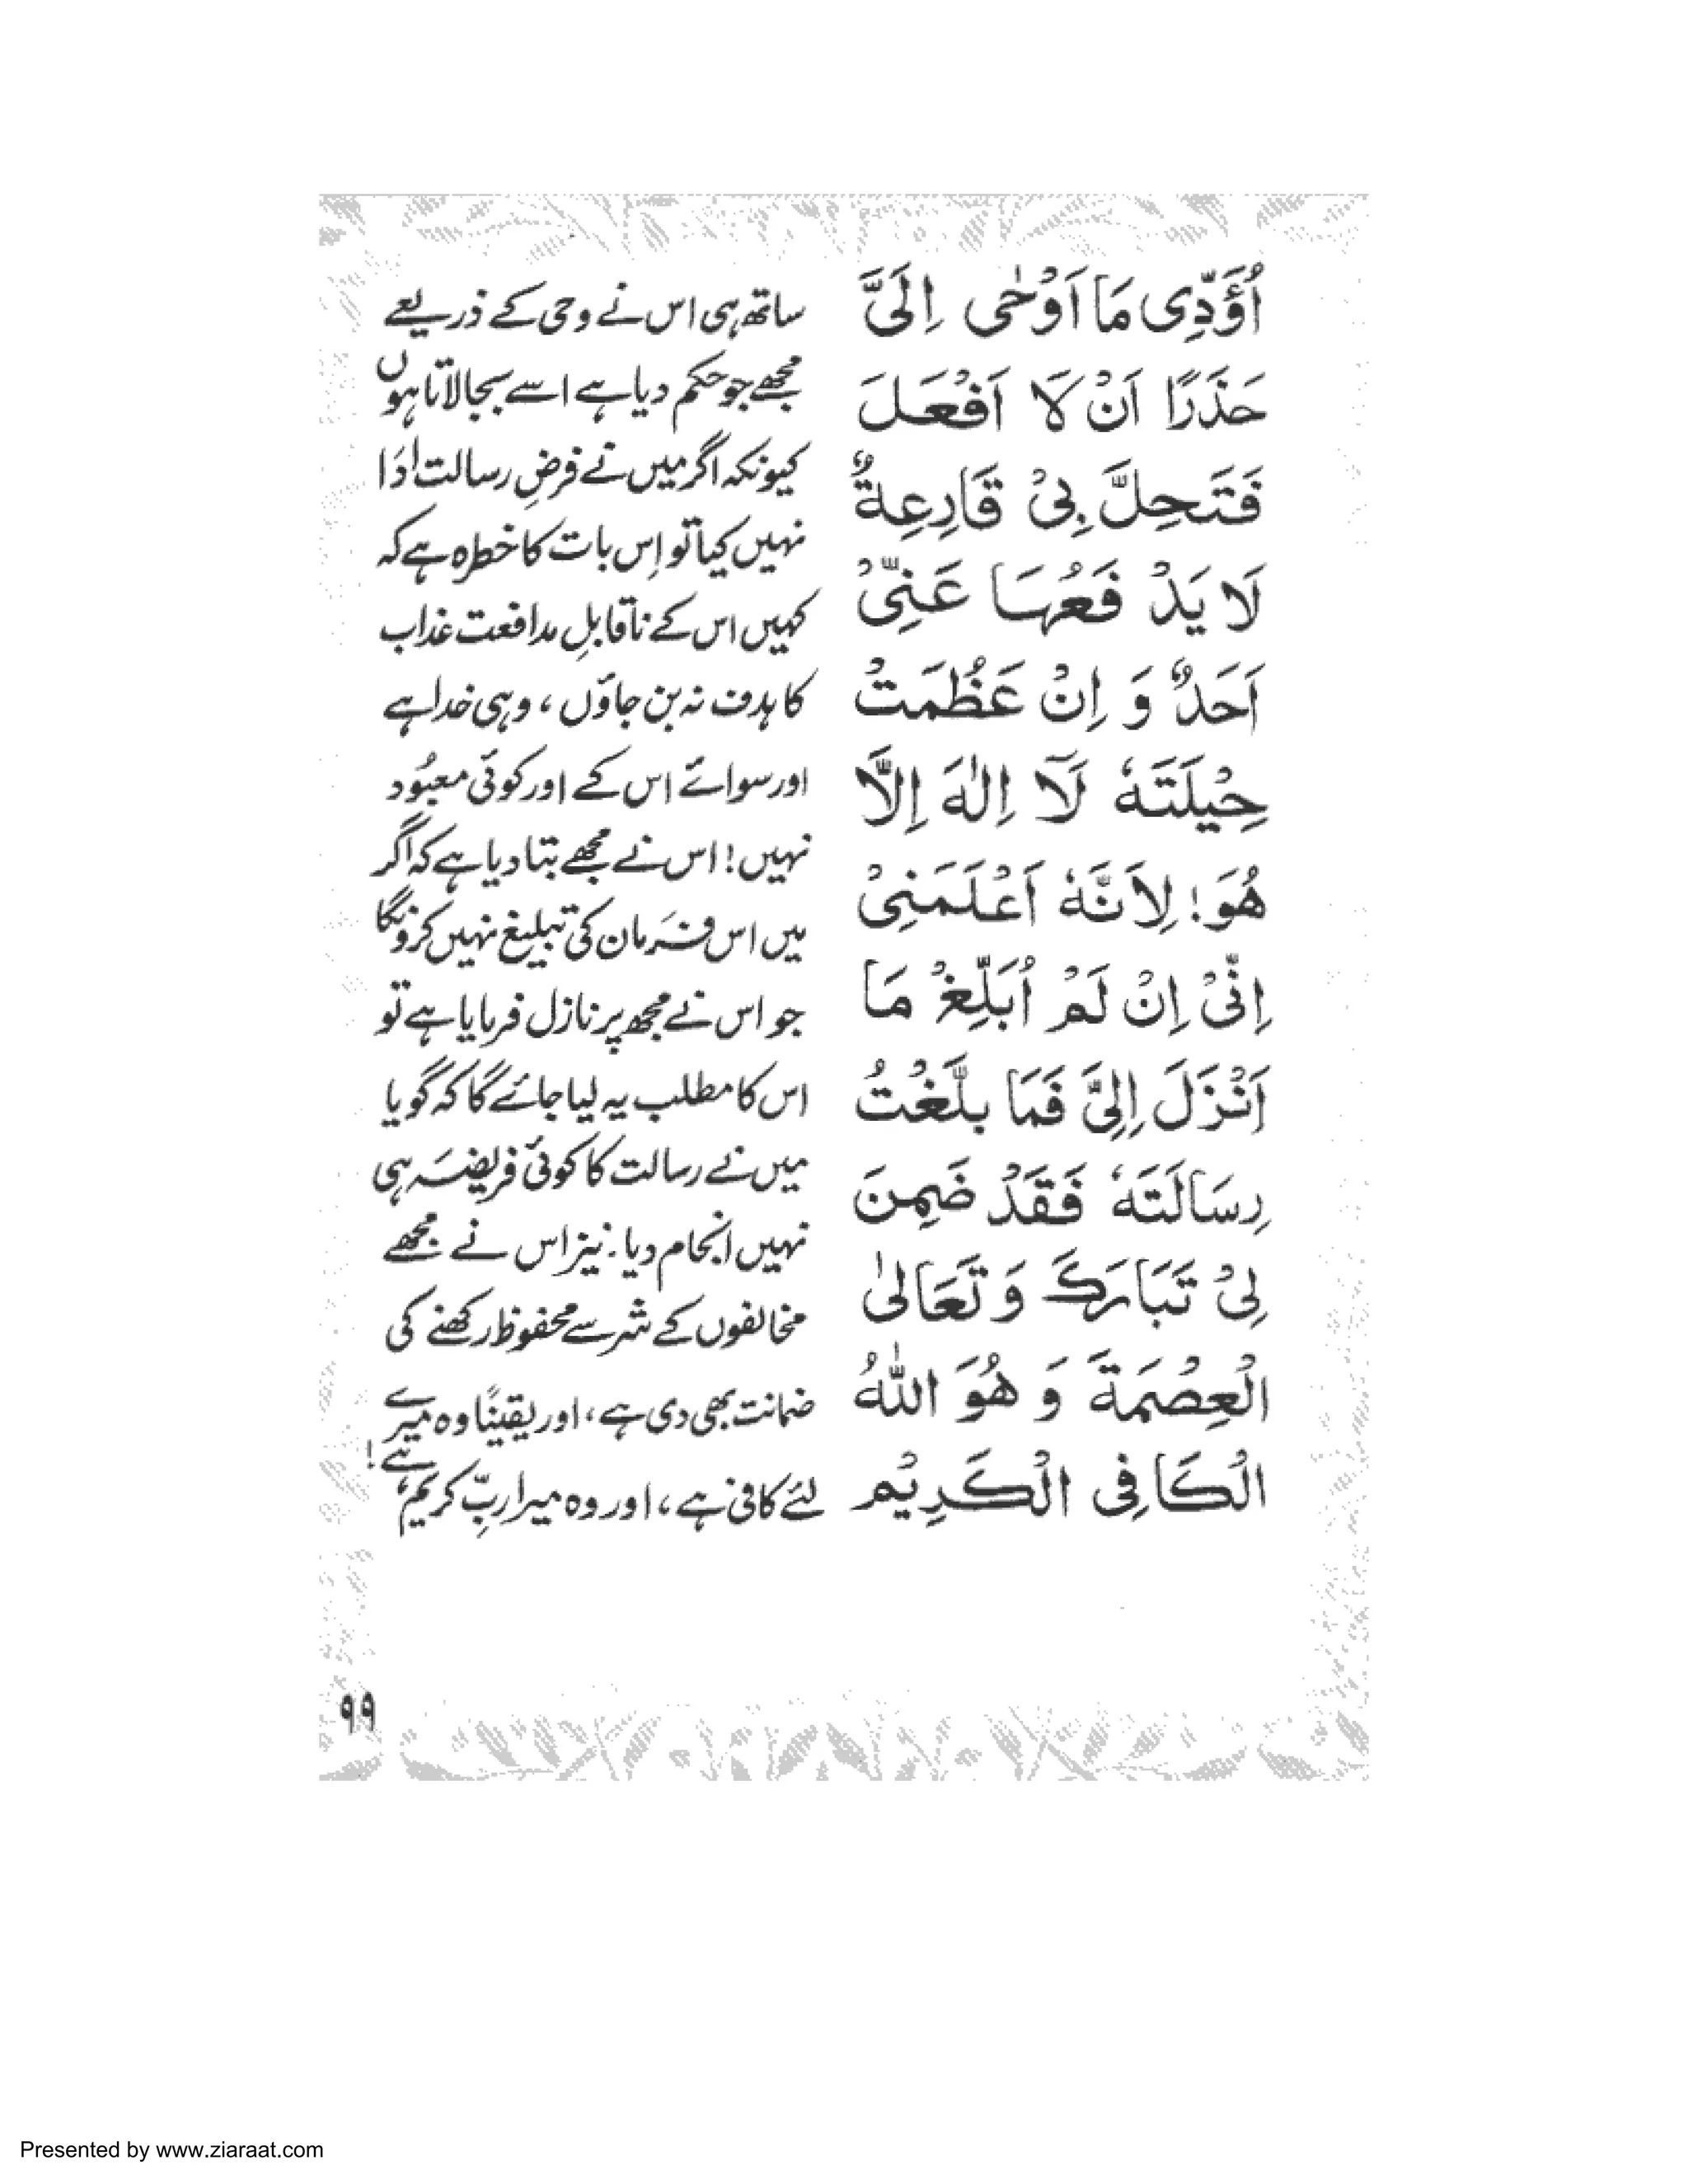 اُؤَدِّی مَا اَوْحٰی اِلَیَّ
حَذَرًا اَنْ لَا اَفْعَلَ
فَتَحِلَّ بِیْ قَارِعِةٌ
لَا یَدْ فَعُهَا عَنِّیْ
اَحَدٌ وَ اِنْ عَظُمَتْ
حِیْلَتَهٗ لَآ اِلٰهَ اِلَّا
هُوَ! لِاَنَّهٗ اَعْلَمَنِیْ
اِنِّیْ اِنْ لَمْ اُبَلِّغْ مَا
اَنْزَلَ اِلِیَّ فَمَا بلَّغْتُ
رِسَالَتَهٗ فَقَدْ ضَمِنَ
لِیْ تَبَارَكَ وَ تَعَالیٰ
الْعِصْمَةَ وَ هُوَ اللّٰهُ
الْكَافِی الْكَرِیْم
ساتھ ہی اس نے وحی کے ذریعے
مجھے جو حکم دیا ہے اسے بجا لاتا ہوں
کیونکہ اگر میں نے فرضِ رسالت ادَا
نہیں کیا تو اِس بات کا خطرہ ہے کہ
کہیں اس کے ناقابلِ مدافعت عذاب
کا ہدف نہ بن جاؤں ، وہی خدا ہے
اور سوائے اس کے اور کوئی معبُود
نہیں! اس نے مجھے بتا دیا ہے کہ اگر
میں اس فرمان کی تبلیغ نہیں کرونگا
جو اس نے مجھ پر نازل فرمایا ہے تو
اس کا مطلب یہ لیا جائے گا کہ گویا
میں نے رسالت کا کوئی فریضہ ہی
نہیں انجام دیا. نیز اس نے مجھے
مخالفوں کے شر سے محفوظ رکھنے کی
ضمانت بھی دی ہے ، اور یقینًا وہ میرے
لئے کافی ہے ، اور وہ میرا ربِّ کریم ہے!
۹۹
Presented by www.ziaraat.com